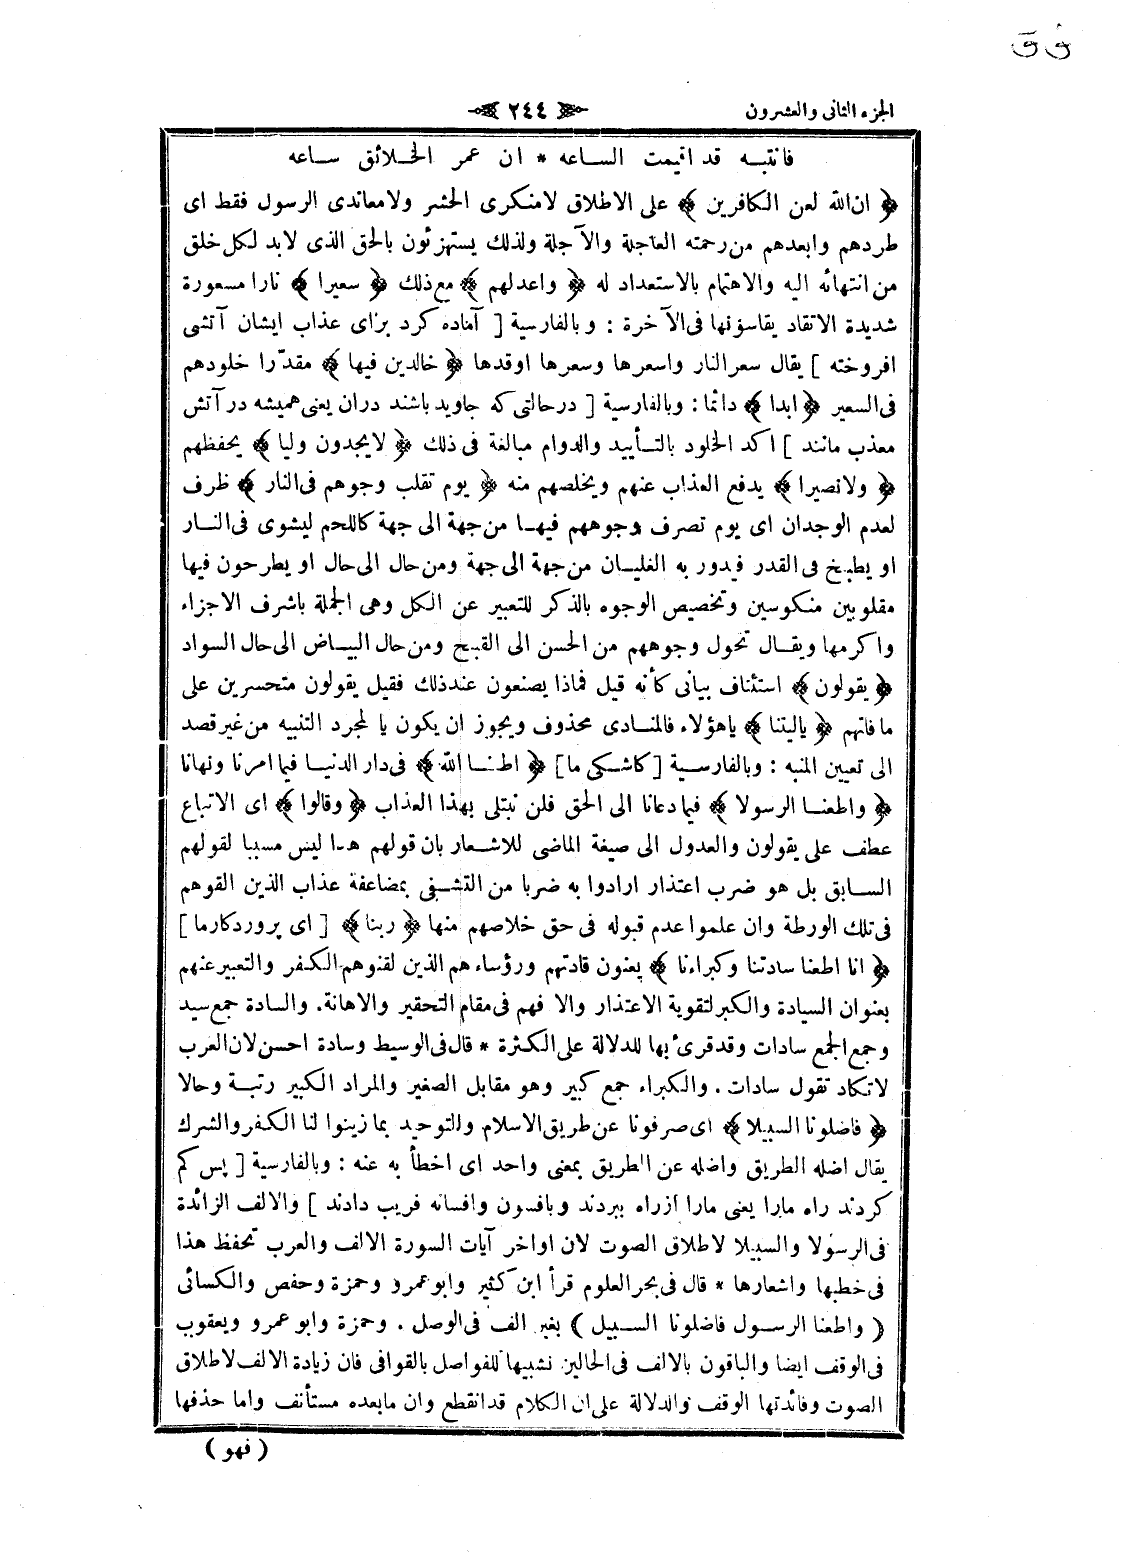 الجزء الثانى والعشرون
٢٤٤
فانتبه قد اقيمت الساعه * ان عمر الخلائق ساعه
﴿ ان الله لعن الكافرين ﴾ على الاطلاق لا منكرى الحشر ولا معاندى الرسول فقط اى
طردهم وابعدهم من رحمته العاجلة والآجلة ولذلك يستهزئون بالحق الذى لابد لكل خلق
من انتهائه اليه والاهتمام بالاستعداد له ﴿ واعد لهم ﴾ مع ذلك ﴿ سعيرا ﴾ نارا مسعورة
شديدة الاتقاد يقاسونها فى الآخرة : وبالفارسية [ آماده كرد براى عذاب ايشان آتشى
افروخته ] يقال سعر النار واسعرها وسعرها اوقدها ﴿ خالدين فيها ﴾ مقدّرا خلودهم
فى السعير ﴿ ابدا ﴾ دائما : وبالفارسية [ درحالتى كه جاويد باشند دران يعنى هميشه در آتش
معذب مانند ] اكد الخلود بالتأبيد والدوام مبالغة فى ذلك ﴿ لا يجدون وليا ﴾ يحفظهم
﴿ ولا نصيرا ﴾ يدفع العذاب عنهم ويخلصهم منه ﴿ يوم تقلب وجوههم فى النار ﴾ ظرف
لعدم الوجدان اى يوم تصرف وجوههم فيها من جهة الى جهة كاللحم ليشوى فى النار
او يطبخ فى القدر فيدور به الغليان من جهة الى جهة ومن حال الى حال او يطرحون فيها
مقلوبين منكوسين وتخصيص الوجوه بالذكر للتعبير عن الكل وهى الجملة باشرف الاجزاء
واكرمها ويقال تحول وجوههم من الحسن الى القبح ومن حال البياض الى حال السواد
﴿ يقولون ﴾ استئناف بيانى كأنه قيل فماذا يصنعون عند ذلك فقيل يقولون متحسرين على
ما فاتهم ﴿ ياليتنا ﴾ يا هؤلاء فالمنادى محذوف ويجوز ان يكون يا لمجرد التنبيه من غير قصد
الى تعيين المنبه : وبالفارسية [ كاشكى ما] ﴿ اطعنا الله ﴾ فى دار الدنيا فيما امرنا ونهانا
﴿ واطعنا الرسولا ﴾ فيما دعانا الى الحق فلن نبتلى بهذا العذاب ﴿ وقالوا ﴾ اى الاتباع
عطف على يقولون والعدول الى صيغة الماضى للاشعار بان قولهم هذا ليس مسببا لقولهم
السابق بل هو ضرب اعتذار ارادوا به ضربا من التشفى بمضاعفة عذاب الذين القوهم
فى تلك الورطة وان علموا عدم قبوله فى حق خلاصهم منها ﴿ ربنا ﴾ [ اى پروردكارما ]
﴿ انا اطعنا سادتنا وكبراءنا ﴾ يعنون قادتهم ورؤساءهم الذين لقنوهم الكفر والتعبير عنهم
بعنوان السيادة والكبر لتقوية الاعتذار والا فهم فى مقام التحقير والاهانة. والسادة جمع سيد
وجمع الجمع سادات وقد قرئ بها للدلالة على الكثرة * قال فى الوسيط وسادة احسن لان العرب
لا تكاد تقول سادات . والكبراء جمع كبير وهو مقابل الصغير والمراد الكبير رتبة وحالا
﴿ فاضلونا السبيلا ﴾ اى صرفونا عن طريق الاسلام والتوحيد بما زينوا لنا الكفر والشرك
يقال اضله الطريق واضله عن الطريق بمعنى واحد اى اخطأ به عنه : وبالفارسية [ پس كم
كردند راه مارا يعنى مارا ازراه ببردند وبافسون وافسانه فريب دادند ] والالف الزائدة
فى الرسولا والسبيلا لاطلاق الصوت لان اواخر آيات السورة الالف والعرب تحفظ هذا
فى خطبها واشعارها * قال فى بحر العلوم قرأ ابن كثير وابو عمرو وحمزة وحفص والكسائى
( واطعنا الرسول فاضلونا السبيل ) بغير الف فى الوصل . وحمزة وابو عمرو ويعقوب
فى الوقف ايضا والباقون بالالف فى الحالين تشبيها للفواصل بالقوافى فان زيادة الالف لاطلاق
الصوت وفائدتها الوقف والدلالة على ان الكلام قد انقطع وان ما بعده مستأنف واما حذفها
( فهو )